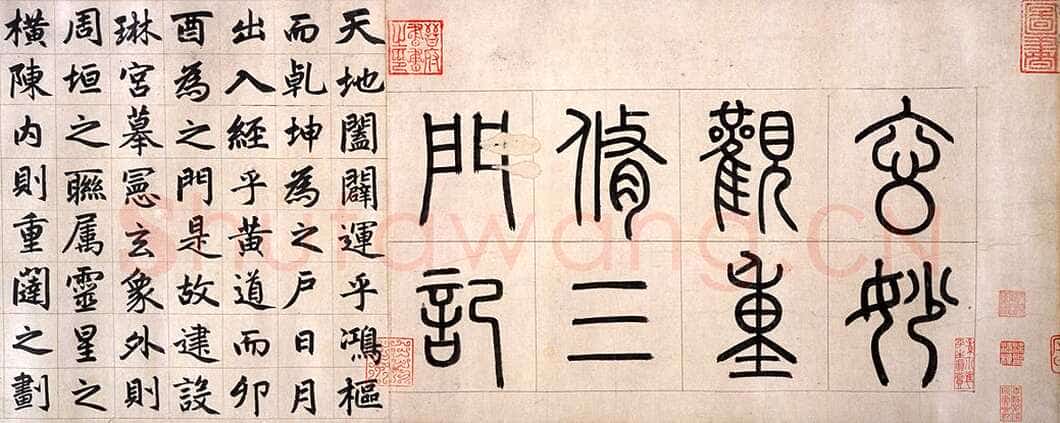 玄妙
觀重
脩三
門記
天地闔闢運乎鴻樞
而乹坤為之戶日月
出入經乎黃道而卯
酉為之門是故建設
琳宮摹憲玄象外則
周垣之聯屬靈星之
橫陳内則重闥之劃
Shufawang.CN